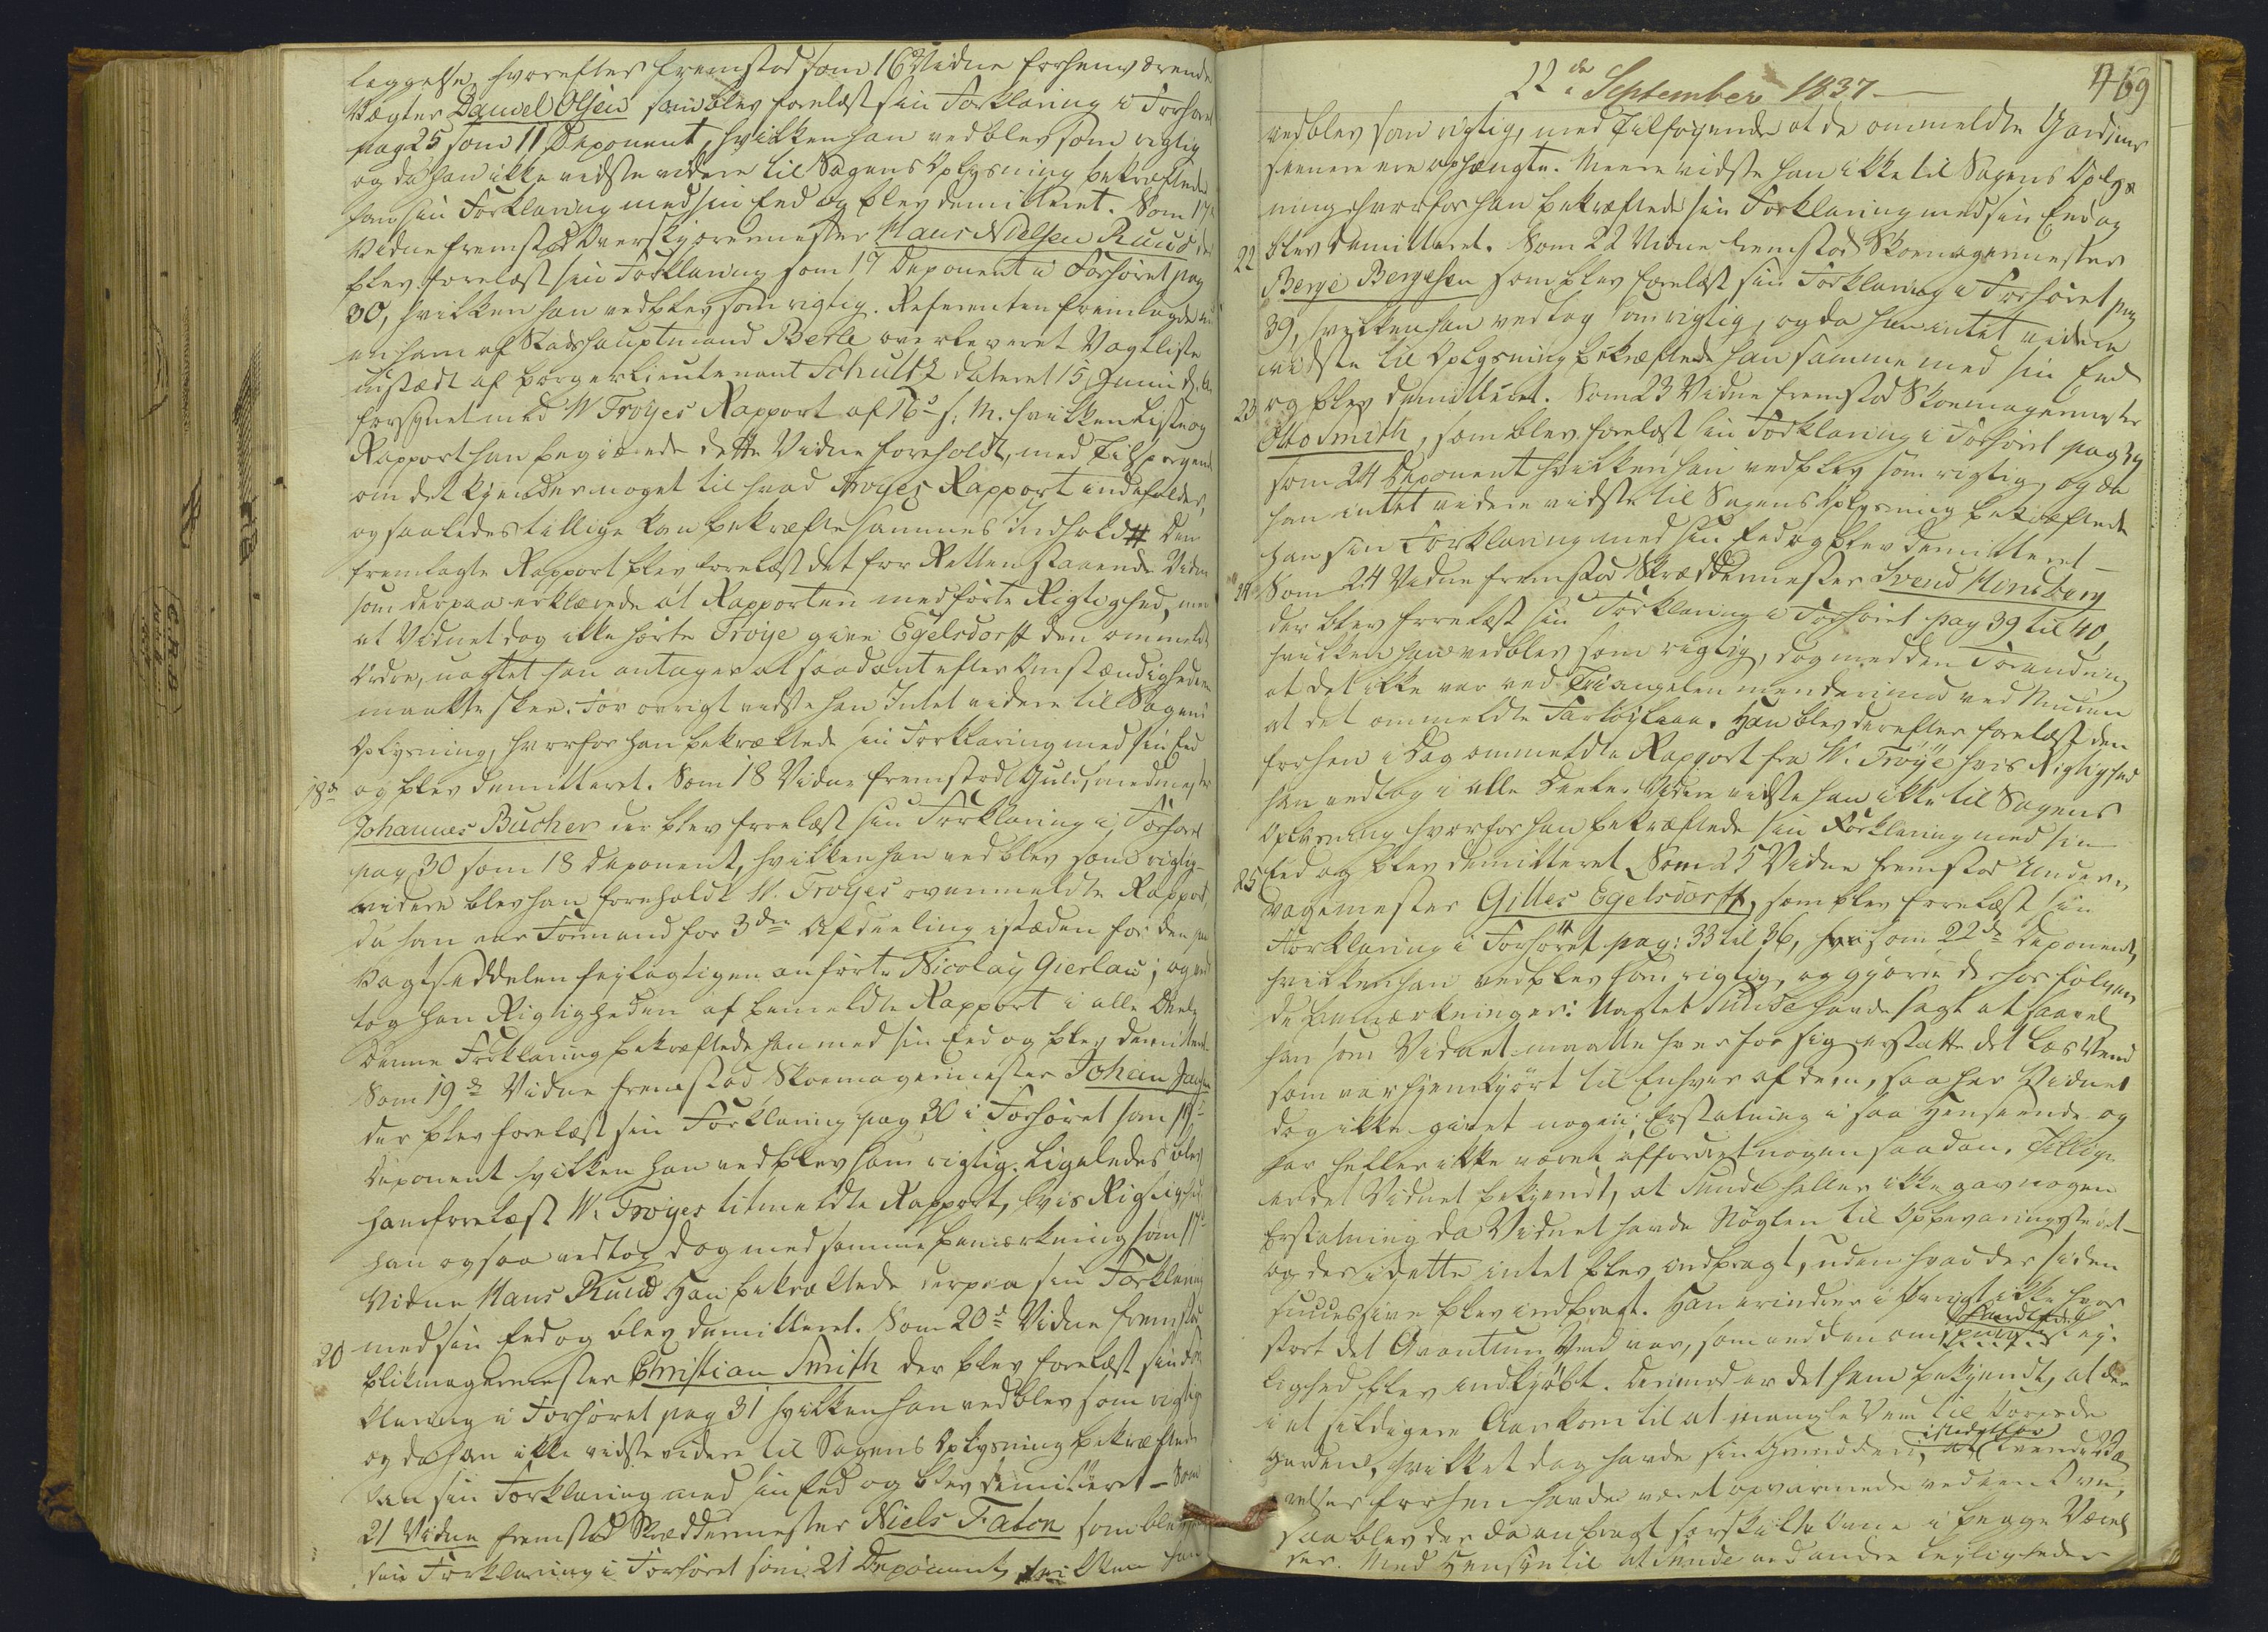 leggelse, hvorefter fremstod som 16de Vidne forhenværende
Vægter Daniel Olsen som blev forelæst sin Forklaring i Forhøret
pag 25 som 11 Deponent, hvilken han vedblev som rigtig
og da han ikke vidste videre til Sagens Oplysning bekræftede
han sin Forklaring med sin Eed og blev demitteret. Som 17de
Vidne fremstod Overskjæremester Hans Nielsen Ruud, der
blev forelæst sin Forklaring som 17 Deponent i Forhøret pag
30, hvilken han vedblev som rigtig. Referenten fremlagde nu
en ham af Stadshauptmand Berle overleveret Vagtliste
udstædt af Borgerlieutenant Schultz dateret 15 Junii d. A.
forsynet med W Troyes Rapport af 16de s. M. hvilken Liste og
Rapport han begjærede dette Vidne foreholdt, med Tilspørgende
om det kjender noget til hvad Troyes Rapport indeholder,
og saaledes tillige kan bekræfte sammes Indhold # Den
fremlagte Rapport blev forelæst det for Retten staaende Vidne
som derpaa erklærede at Rapporten medførte Rigtighed, men
at Vidnet dog ikke hørte Troye give Egelsdorff den ommeldte
Ordre, uagtet han antager at saadant efter Omstændighederne
maatte skee. For øvrigt vidste han Intet videre til Sagens
Oplysning, hvorfor han bekræftede sin Forklaring med sin Eed
18de og blev demitteret. Som 18 Vidne fremstod Guldsmedmester
Johannes Bucher der blev forelæst sin Forklaring i Forhøret
pag 30 som 18 Deponent, hvilken han vedblev som rigtig-
videre blev han foreholdt W. Troyes ovenmeldte Rapport,
da han var Formand for 3die Afdeeling istæden for den paa
Vagtseddelen feilagtigen anførte Nicolay Gierlau; og ved
tog han Rigtigheden af bemeldte Rapport i alle Dele
Denne Forklaring bekræftede han med sin Eed og blev demitteret
Som 19de Vidne fremstod Skomagermester Johan Jansen
der blev forelæst sin Forklaring pag 30 i Forhøret som 19de
Deponent hvilken han vedblev som rigtig. Ligeledes blev
ham forelæst W. Troyes titmeldte Rapport, hvis Rigtighed
han ogsaa vedtog dog med samme Bemærkning som 17de
Vidne Hans Ruud. Han bekræftede derpaa sin Forklaring
20 med sin Eed og blev demitteret. Som 20de Vidne fremstod
Blikmagermester Christian Smith der blev forelæst sin For
klaring i Forhøret pag 31 hvilken han vedblev som rigtig
og da han ikke vidste videre til Sagens Oplysning bekræftede
han sin Forklaring med sin Eed og blev demitteret - Som
21 Vidne fremstod Skræddermester Niels Faton som blev
sin Forklaring i Forhøret som 21 Deponent, hvilken han
22de September 1837.
469
vedblev som rigtig, med Tilføiende at de ommeldte Gardiner
senere ere ophængte. Meere vidste han ikke til Sagens Oplys
ning hvorfor han bekræftede sin Forklaring med sin Eed og
22 blev demitteret. Som 22 Vidne fremstod Skomagermester
Berge Bergesen som blev forelæst sin Forklaring i Forhøret pag
39, hvilken han vedtog som rigtig, og da han intet videre
vidste til Oplysning bekræftede han samme med sin Eed
23 og blev demitteret. Som 23 Vidne fremstod Skomagermester
Otto Smith, som blev forelæst sin Forklaring i Forhøret pag 39
som 24 Deponent hvilken han vedblev som rigtig, og da
han intet videre vidste til Sagens Oplysning bekræftede
han sin Forklaring med sin Eed og blev demitteret -
24 Som 24 Vidne fremstod Skræddermester Svend Hinsberg
der blev forelæst sin Forklaring i Forhøret pag 39 til 40,
hvilken han vedblev som rigtig, dog med den Forandring
at det ikke var ved Triangelen men derimod ved Muuren
at det ommeldte Fartøi laae. Han blev derefter forelæst den
forhen i Dag ommeldte Rapport fra W. Troye hvis Rigtighed
han vedtog i alle Deele. Videre vidste han ikke til Sagens
Oplysning hvorfor han bekræftede sin Forklaring med sin
25 Eed og blev demitteret. Som 25 Vidne fremstod Under-
vagtmester Gilles Egelsdorff, som blev forelæst sin
Forklaring i Forhøret pag: 33 til 36, som 22de Deponent,
hvilken han vedblev som rigtig, og gjorde derhos følgen
de Bemærkninger: Uagtet Sunde havde sagt at saavel
han som Vidnet maatte hver for sig erstatte det Læs Veed
som var hjemkjørt til Enhver af dem, saa har Vidnet
dog ikke givet nogen Erstatning i saa Henseende og
har heller ikke været affordret nogen saadan. Tillige
er det Vidnet bekjendt, at Sunde heller ikke gav nogen
Erstatning da Vidnet havde Nøglen til Opbevaringsstedet -
og der i dette intet blev indbragt, uden hvad der siden
successive blev indbragt. Han erindrer i øvrigt ikke hvor
stort det Qvantum Ved var, som ved den om
lighed blev indkjøbt. Derimod er det ham bekjendt, at der
i et sildigere Aar kom til at mangle Veed til
Gården, hvilket dog havde sin Grund deri, at istedetfor tvende Væ
relser forhen havde været opvarmede ved een Ovn,
saa blev der da anbragt særskilte Ovne i begge Værel
ser. Med Hensyn til at Sunde ved andre Leiligheder